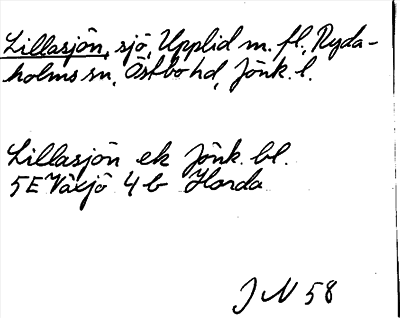 Lillasjön, sjö, Upplid m. fl., Ryda-
holms sn, Östbo hd, Jönk. l.
Lillasjön ek Jönk. bl.
5E Växjö 4b Horda
J N 58